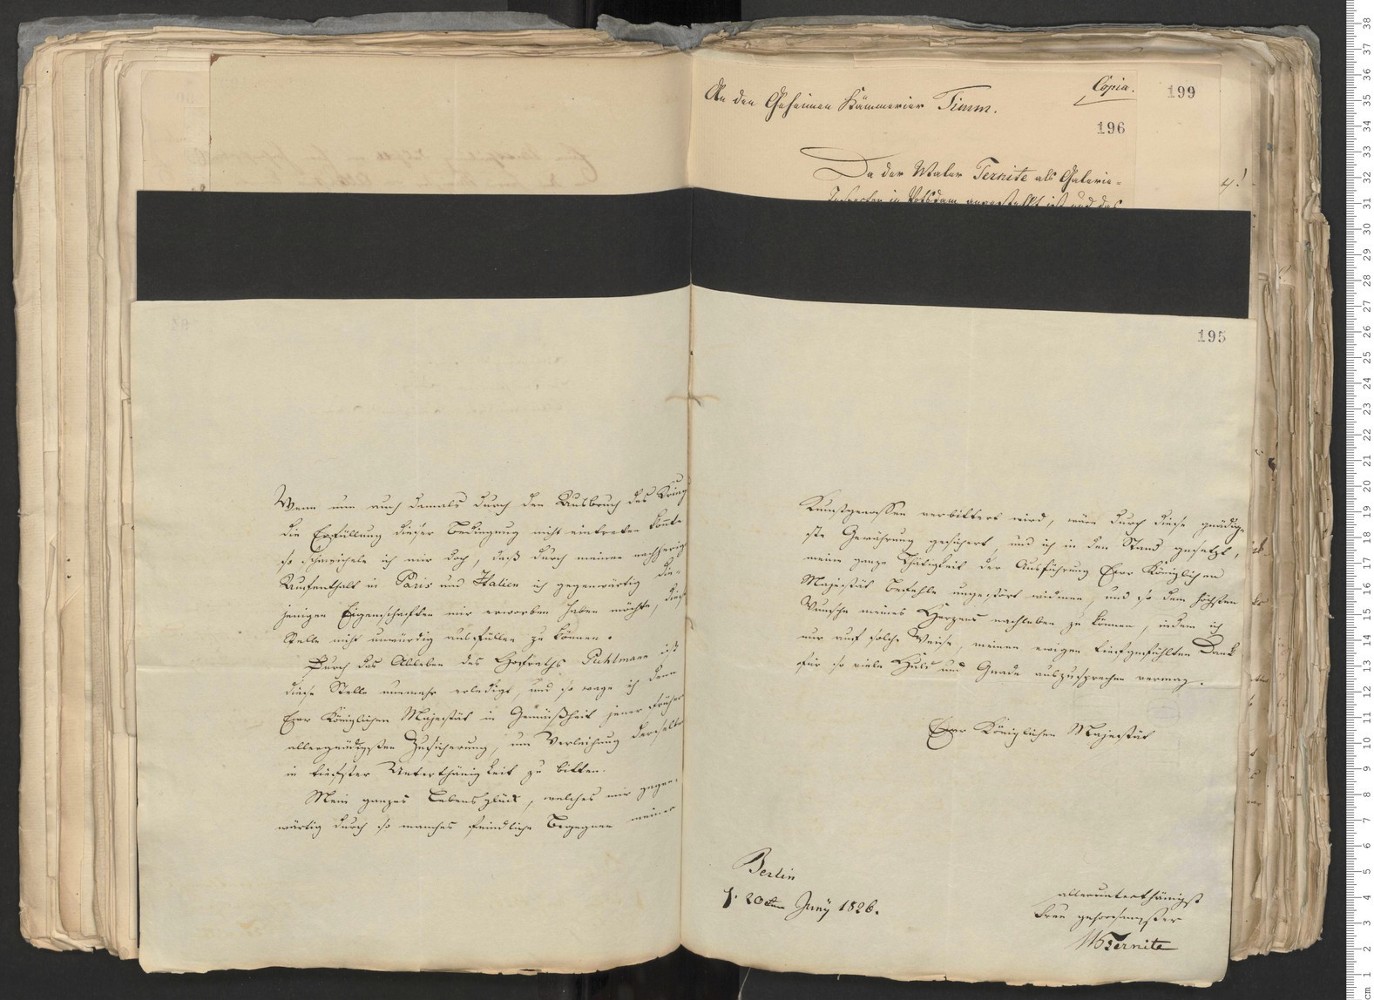 Copia.
199
An den Geheimen Kämmerier Timm.
196
Da der Maler Ternite als Galerie-
Inspector in Potsdam angestellt ist und das
195
Wenn nun auch damals durch den Ausbruch des Krieg
die Erfüllung dieser Bedingung nicht eintreten konnte
so schmeichele ich mir doch, daß durch meinen nachherig
Aufenthalt in Paris und Italien ich gegenwärtig die-
jenigen Eigenschaften mir erworben haben möchte, diese
Stelle nicht unwürdig ausfüllen zu können.
Durch das Ableben des Hofraths Puhlmann ist
diese Stelle nunmehr erledigt, und so wage ich denn
Eure Königlichen Majestät in Gemäßheit jener früher
allergnädigsten Zusicherung, um Verleihung derselben
in tiefster Unterthänigkeit zu bitten.
Mein ganzes Lebensglück, welches mir gegen-
wärtig durch so manches feindliche Begegnen meiner
Kunstgenossen verbittert wird, wäre durch diese gnädig-
ste Gewährung gesichert, und ich in den Stand gesetzt,
meine ganze Thätigkeit der Ausführung Eurer Königlichen
Majestät Befehle ungestört widmen, und so dem höchsten
Wunsche meines Herzens nachleben zu können, indem ich
nur auf solche Weise, meinen ewigen tiefgefühlten Dank
für so viele Huld und Gnade auszusprechen vermag.
Eurer Königlichen Majestät
Berlin
d. 20ten Juny 1826.
allerunterthänigst
treu gehorsamster
W Ternite